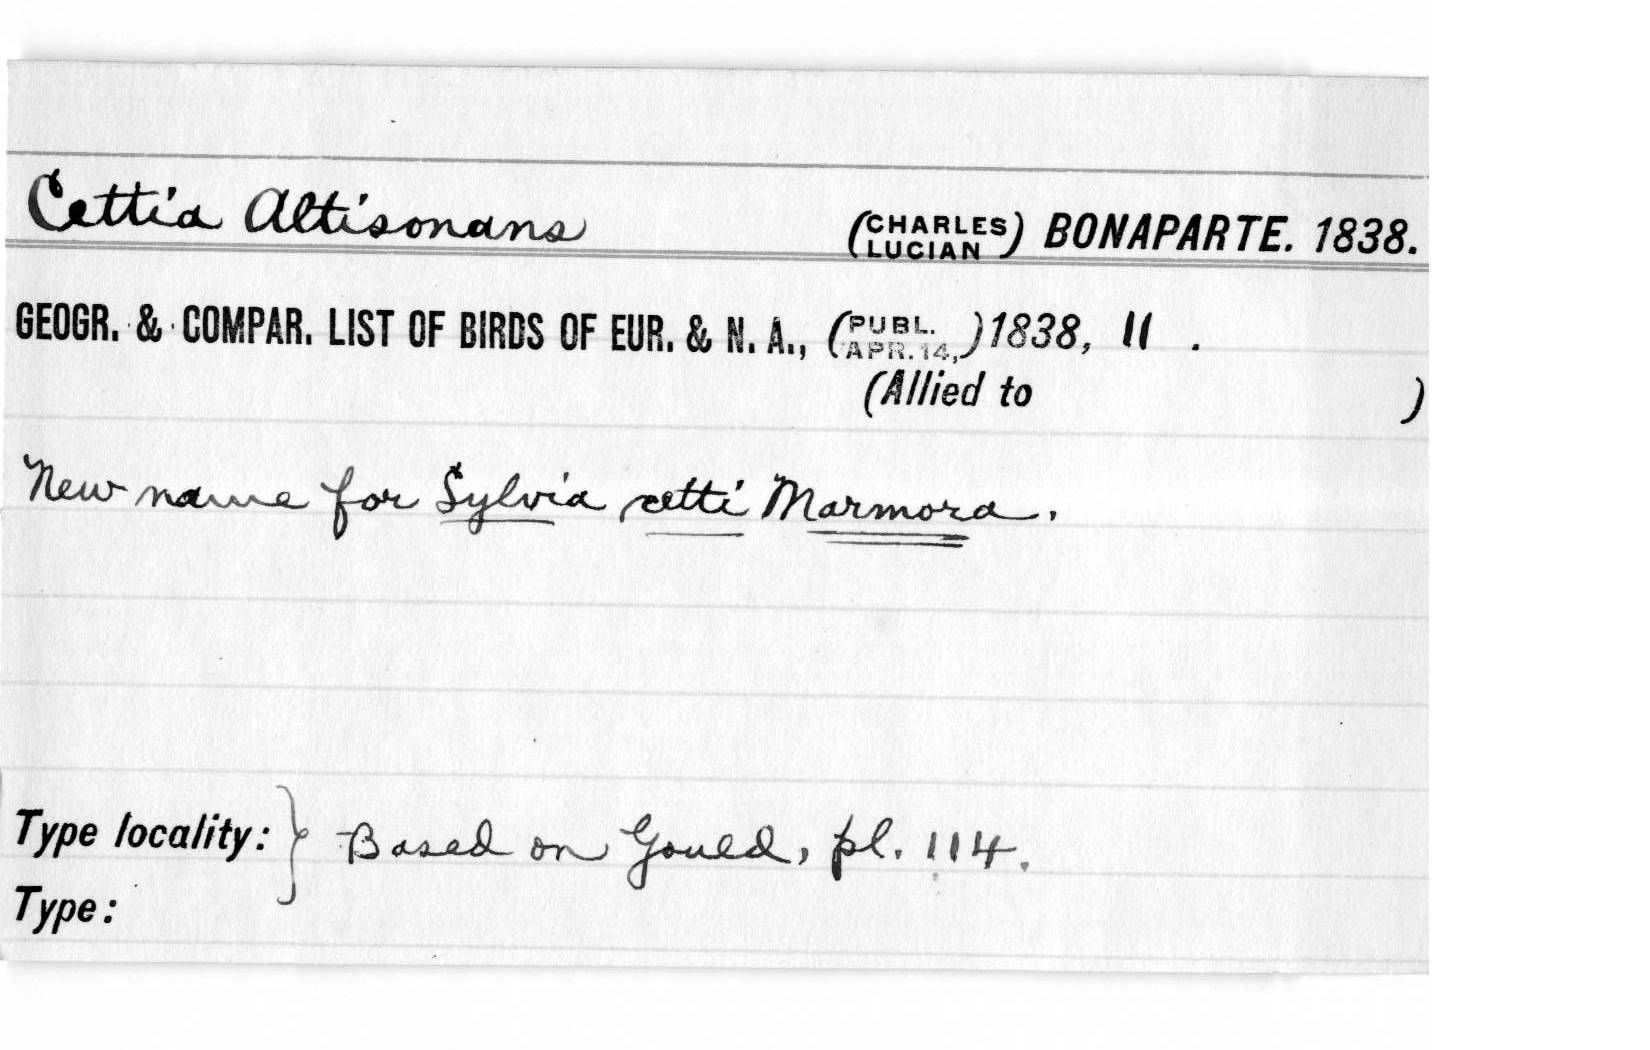 Cettia Altisonans (CHARLES LUCIAN) BONAPARTE. 1838.
GEOGR. & COMPAR. LIST OF BIRDS OF EUR. & N. A., (PUBL. APR. 14,) 1838, 11 .
(Allied to )
New name for Sylvia cetti Marmora.
Type locality: } Based on Gould, pl. 114.
Type: